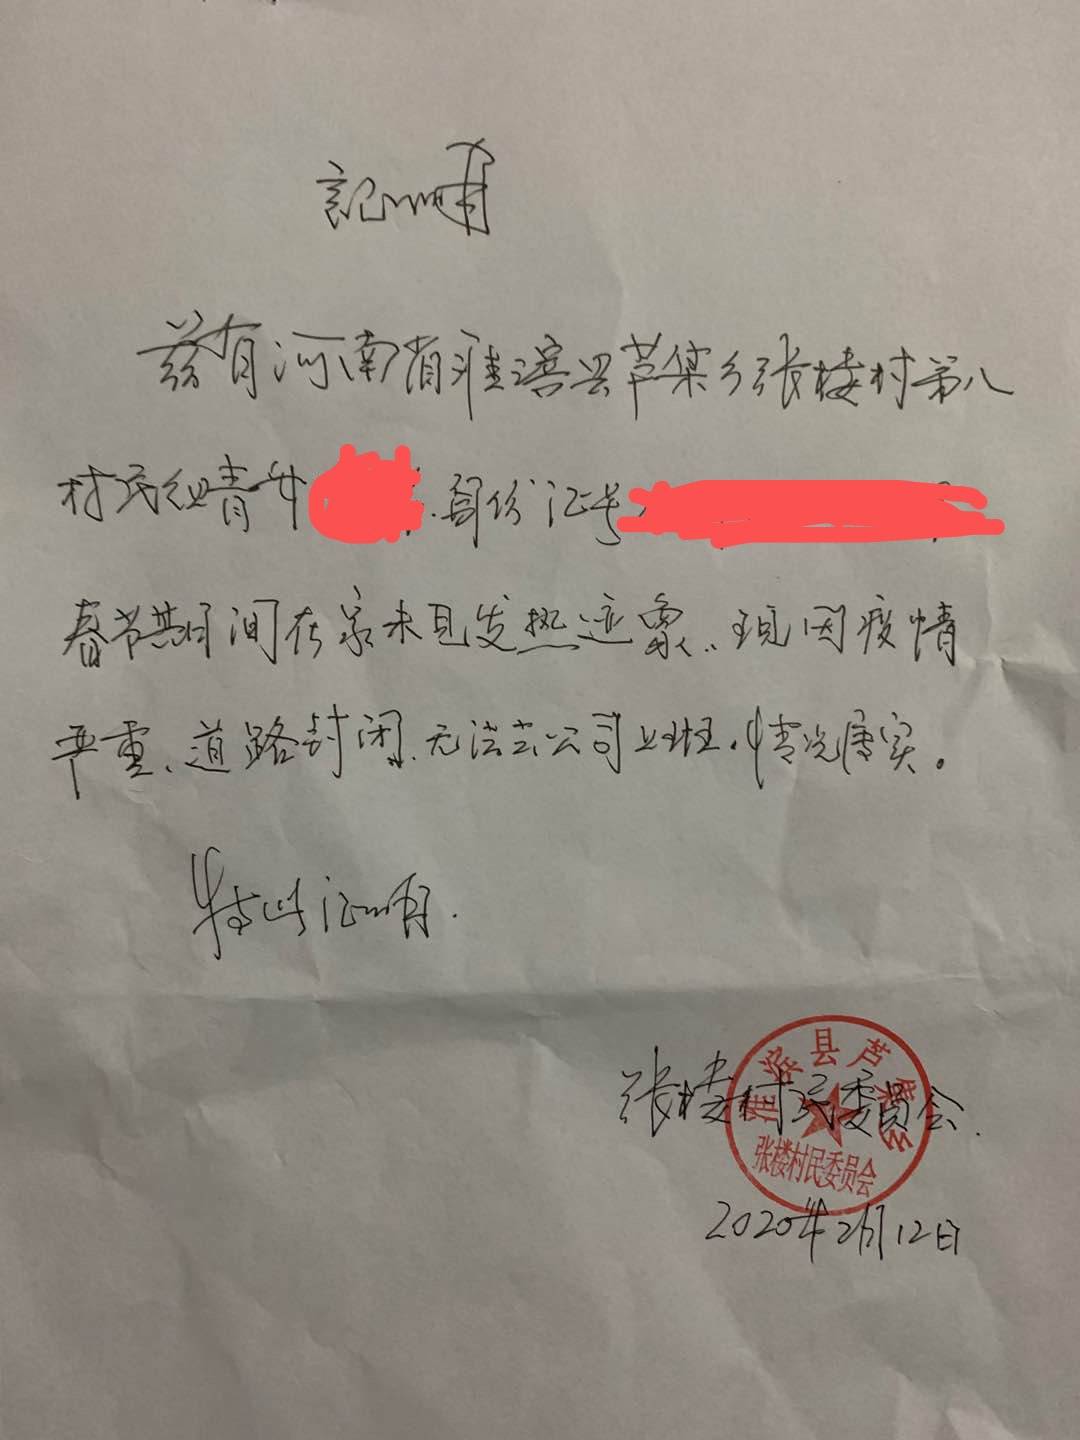 证明
兹有河南省淮滨县芦集乡张楼村第八
村民组青年 身份证号
春节期间在家未见发热迹象.. 现因疫情
严重、道路封闭.无法去公司上班.情况属实。
特此证明.
淮滨县芦集乡
张楼村民委员会.
张楼村民委员会
2020年2月12日